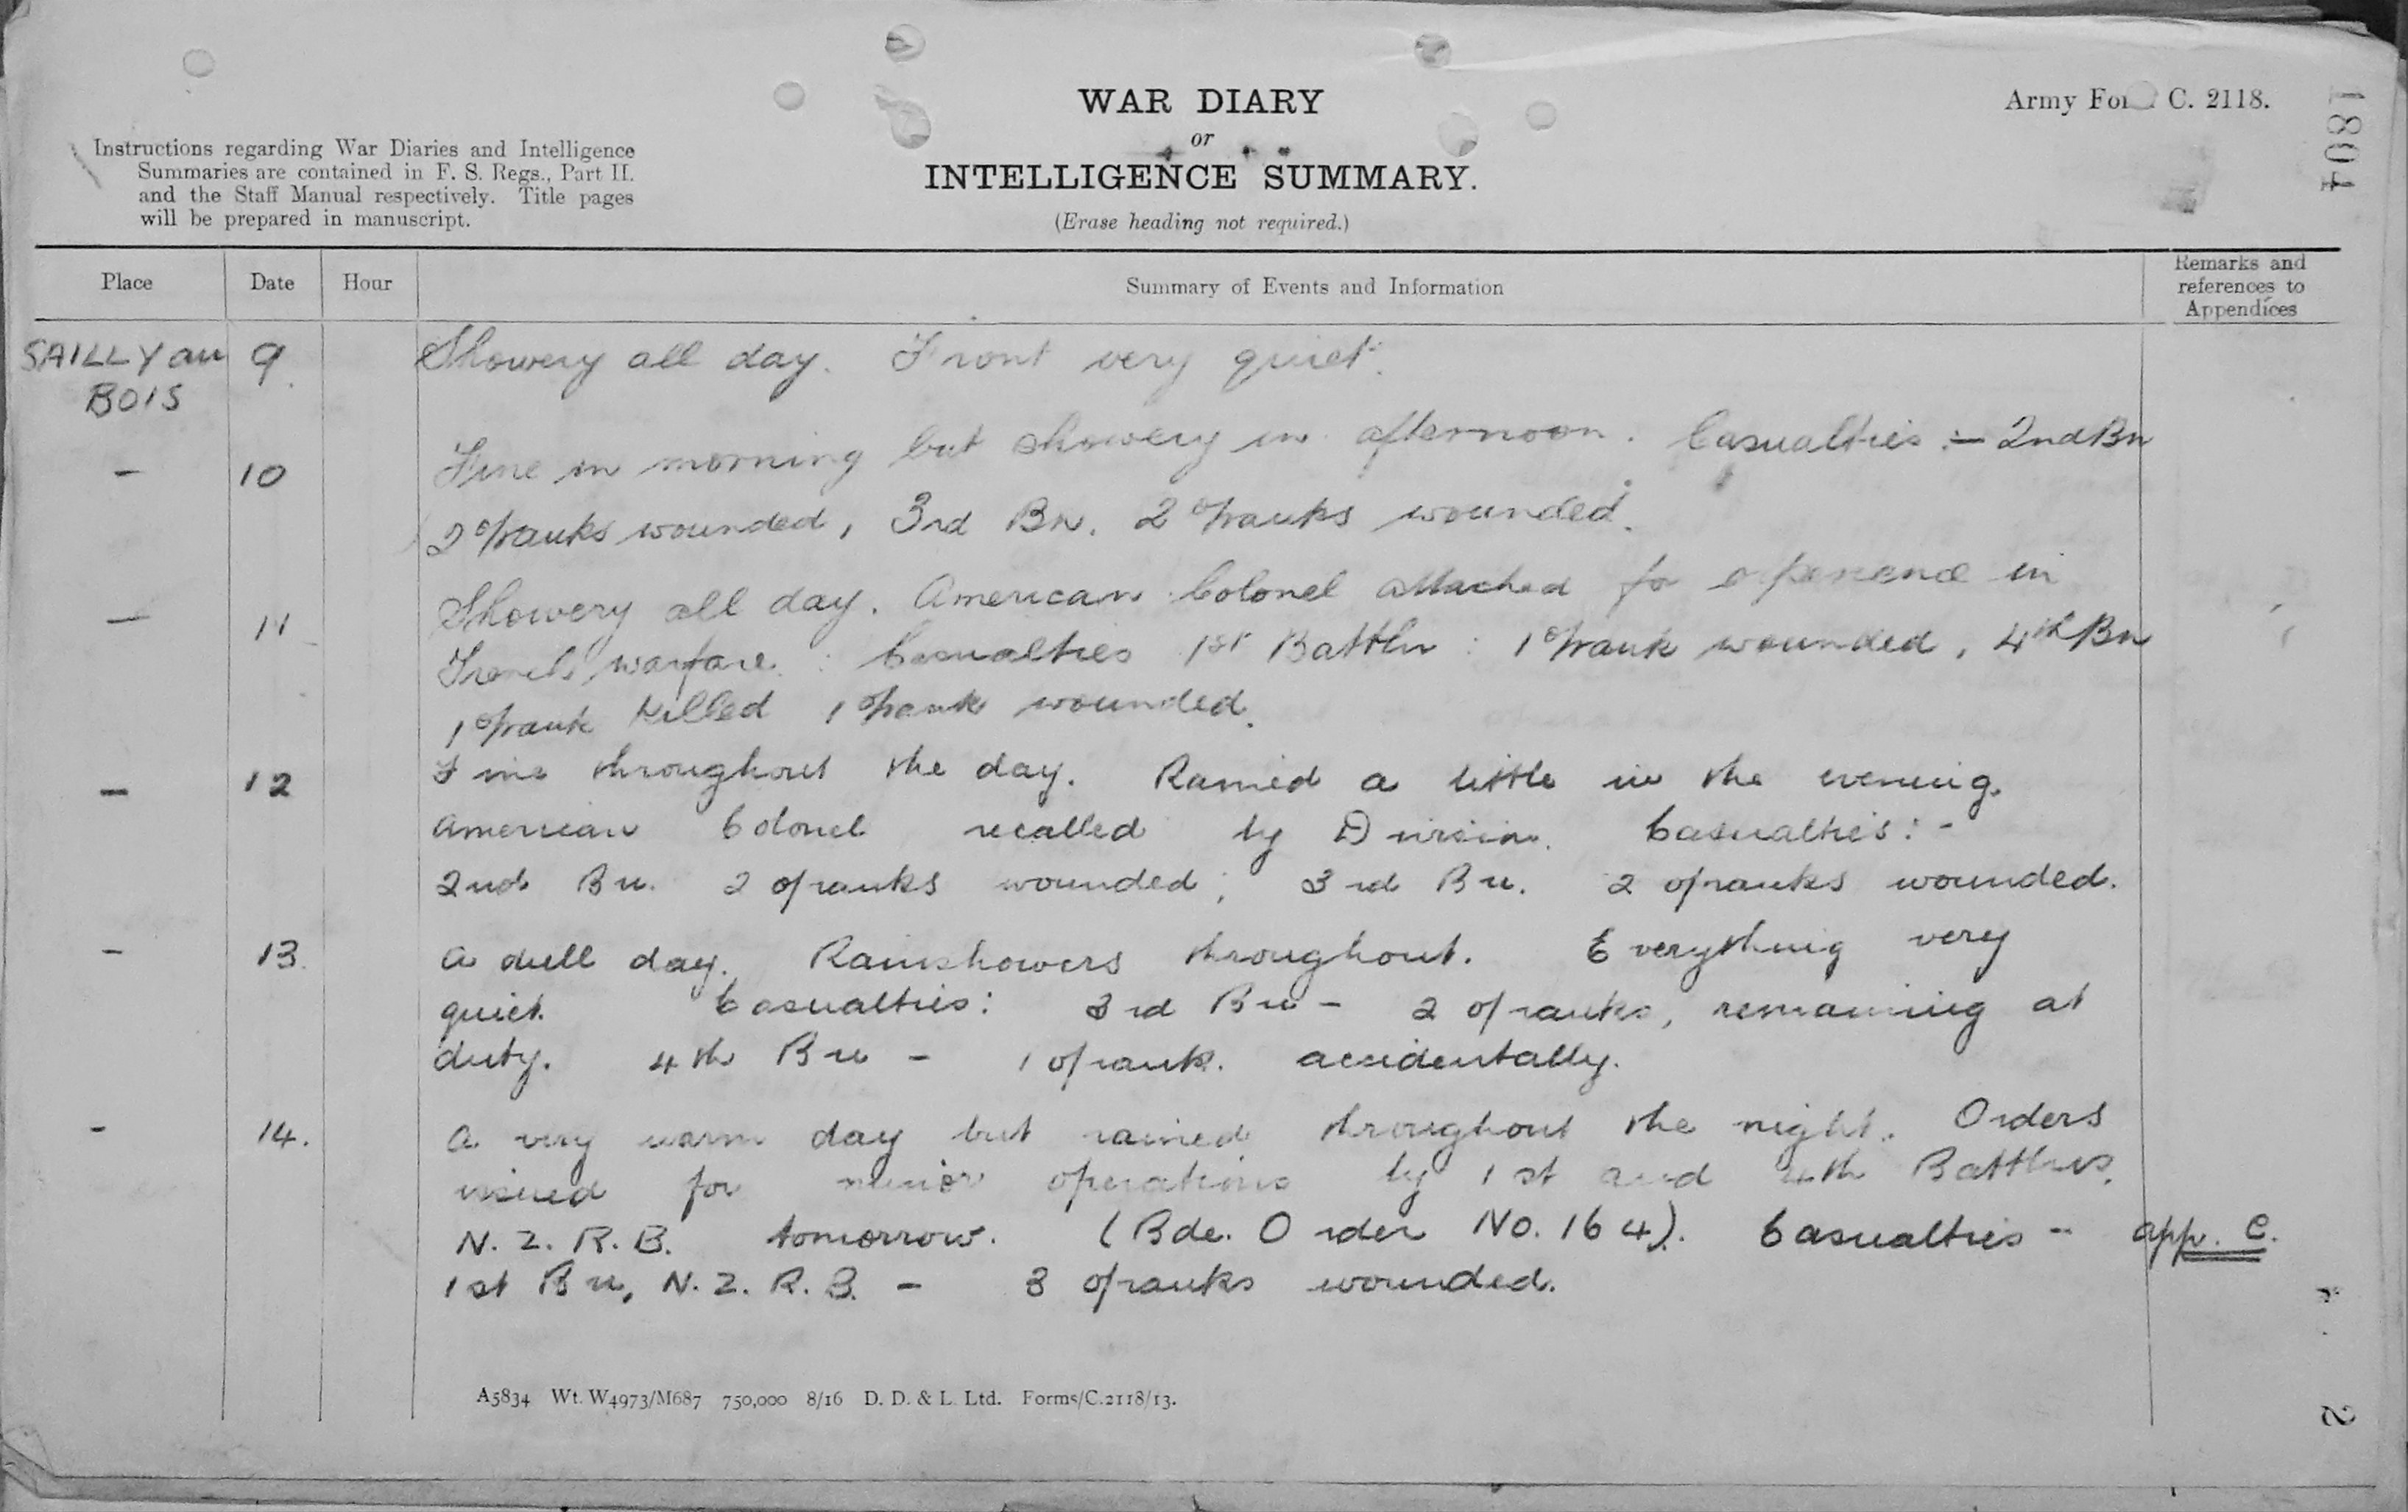 WAR DIARY
or
INTELLIGENCE SUMMARY.
(Erase heading not required.)
Army For C. 2118.
1804
Instructions regarding War Diaries and Intelligence
Summaries are contained in F. S. Regs., Part II.
and the Staff Manual respectively. Title pages
will be prepared in manuscript.
Place Date Hour Summary of Events and Information Remarks and references to Appendices
SAILLY au BOIS 9 Showery all day. Front very quiet.
– 10 Fine in morning but showery in afternoon. Casualties :– 2nd Bn
2 o/ranks wounded, 3rd Bn. 2 o/ranks wounded.
– 11 Showery all day. American Colonel attached for experience in
Trench warfare. Casualties 1st Battln : 1 o/rank wounded, 4th Bn
1 o/rank killed 1 o/rank wounded.
– 12 Fine throughout the day. Rained a little in the evening.
American Colonel recalled by Division. Casualties:-
2nd Bn. 2 o/ranks wounded; 3rd Bn. 2 o/ranks wounded.
– 13. A dull day. Rainshowers throughout. Everything very
quiet. Casualties: 3rd Bn – 2 o/ranks, remaining at
duty. 4th Bn – 1 o/rank. accidentally.
– 14. A very warm day but rained throughout the night. Orders
issued for minor operations by 1st and 4th Battlns.
N.Z.R.B. tomorrow. (Bde. Order No. 164). Casualties – app. C.
1st Bn, N.Z.R.B. – 3 o/ranks wounded.
A5834 Wt. W4973/M687 750,000 8/16 D. D. & L. Ltd. Forms/C.2118/13.
2